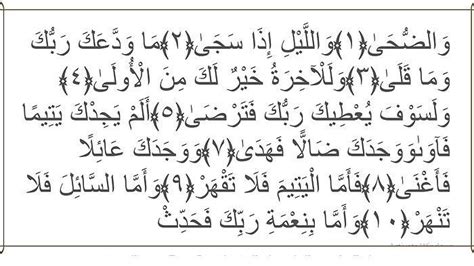 وَالضُّحَىٰ﴿١﴾وَاللَّيْلِ إِذَا سَجَىٰ﴿٢﴾مَا وَدَّعَكَ رَبُّكَ
وَمَا قَلَىٰ﴿٣﴾وَلَلْآخِرَةُ خَيْرٌ لَكَ مِنَ الْأُولَىٰ﴿٤﴾
وَلَسَوْفَ يُعْطِيكَ رَبُّكَ فَتَرْضَىٰ﴿٥﴾أَلَمْ يَجِدْكَ يَتِيمًا
فَآوَىٰوَوَجَدَكَ ضَالًّا فَهَدَىٰ﴿٧﴾وَوَجَدَكَ عَائِلًا
فَأَغْنَىٰ﴿٨﴾فَأَمَّا الْيَتِيمَ فَلَا تَقْهَرْ﴿٩﴾وَأَمَّا السَّائِلَ فَلَا
تَنْهَرْ﴿١٠﴾وَأَمَّا بِنِعْمَةِ رَبِّكَ فَحَدِّثْ